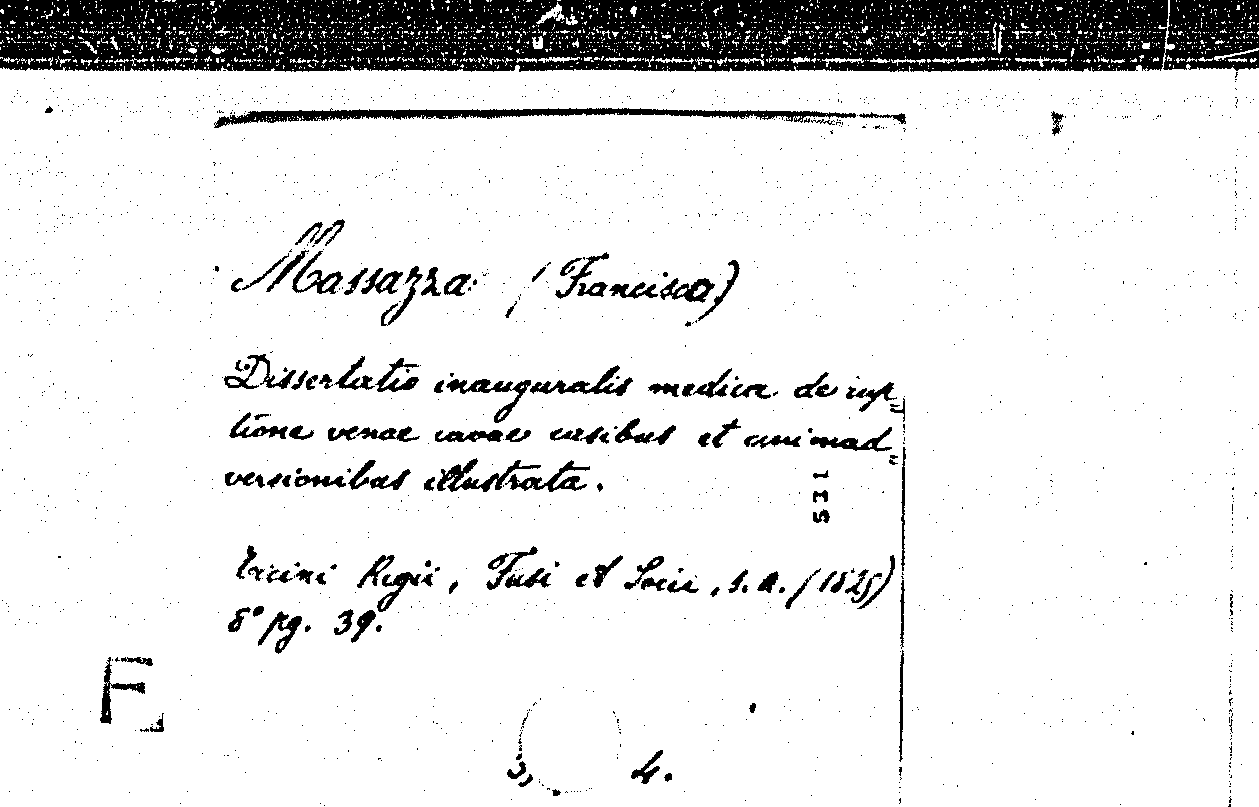 Massazza (Francisca)
Dissertatio inauguralis medica de rup„
tione venae cavae casibus et animad„
versionibus illustrata.
Ticini Regii, Fusi et Socii, s. a. (1825)
8° pg. 39.
SIL
F
3, 4.